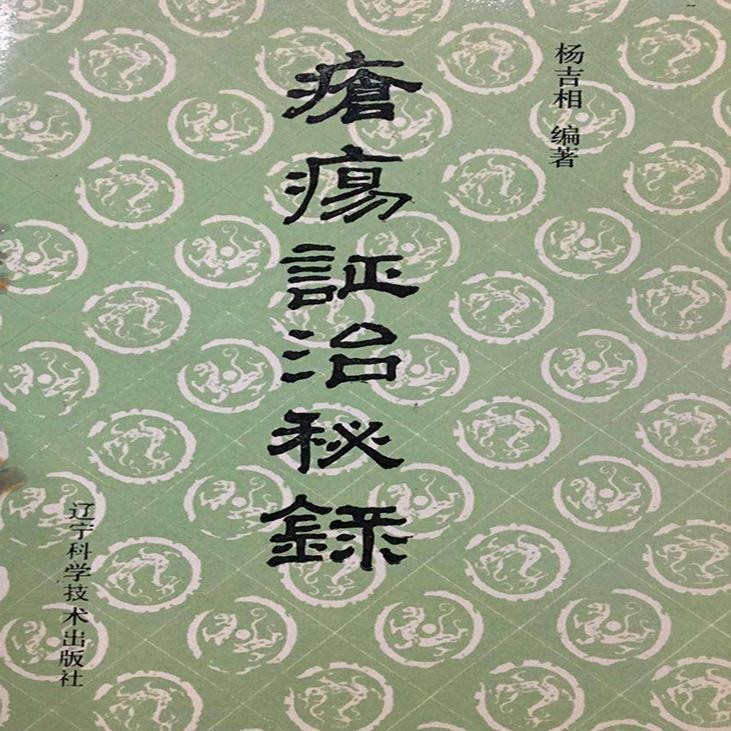 杨吉相 编著
瘡瘍証治秘録
辽宁科学技术出版社